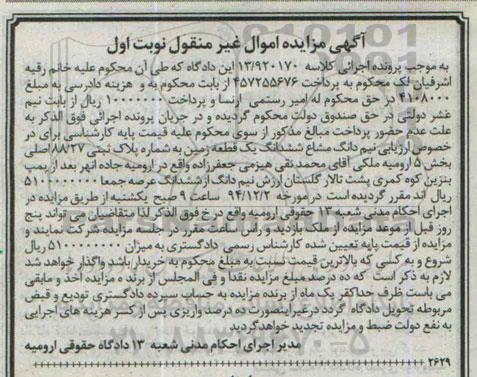 آگهی مزایده اموال غیر منقول نوبت اول
به موجب پرونده اجرائی کلاسه ۱۳/۹۲۰۱۷۰ این دادگاه که طی آن محکوم علیه خانم رقیه
اشرفیان لک محکوم به پرداخت ۴۵۷۲۵۵۶۷۶ از بابت محکوم به و هزینه دادرسی به مبلغ
۴۱۰۸۰۰۰ در حق محکوم له امیر رستمی ارنسا و پرداخت ۱۰۰۰۰۰۰۰ ریال از بابت نیم
عشر دولتی در حق صندوق دولت محکوم گردیده و در جریان پرونده اجرائی فوق الذکر به
علت عدم حضور پرداخت مبالغ مذکور از سوی محکوم علیه قیمت پایه کارشناسی برای در
خصوص ارزیابی نیم دانگ مشاع ششدانگ یک قطعه زمین به شماره پلاک ثبتی ۸۸۲۷ اصلی
بخش ۵ ارومیه ملکی آقای محمد تقی هیزمی جعفرزاده واقع در ارومیه جاده انهر بعد از پمپ
بنزین کوه کمری پشت تالار گلستان ارزش نیم دانگ از ششدانگ عرصه جمعا ۵۱۰۰۰۰۰۰۰۰
ریال اند مقرر گردیده است در مورخه ۹۴/۱۲/۲ ساعت ۹ صبح یکشنبه از طریق مزایده در
اجرای احکام مدنی شعبه ۱۳ حقوقی ارومیه واقع در خ فوق الذکر لذا متقاضیان می تواند پنج
روز قبل از موعد مزایده از ملک بازدید و راس ساعت مقرر در جلسه مزایده شرکت نمایند و
مزایده از قیمت پایه تعیین شده کارشناس رسمی دادگستری به میزان ۵۱۰۰۰۰۰۰۰۰ ریال
شروع و به کسی که بالاترین قیمت نسبت به مبلغ محکوم به خریدار باشد واگذار خواهد شد
لازم به ذکر است که ده درصد مبلغ مزایده نقدا و فی المجلس از برنده مزایده اخذ و مابقی
می باست ظرف حداکثر یک ماه از برنده مزایده به حساب سپرده دادگستری تودیع و قبض
مربوطه تحویل دادگاه گردد درغیراینصورت ده درصد واریزی پس از کسر هزینه های اجرایی
به نفع دولت ضبط و مزایده تجدید خواهدگردید
مدیر اجرای احکام مدنی شعبه ۱۳ دادگاه حقوقی ارومیه
۲۶۲۹